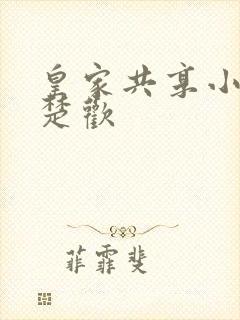 皇家共享小
楚歡
菲霏斐